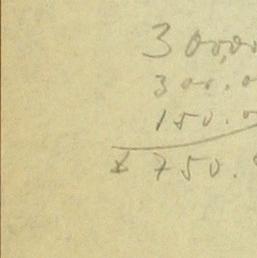 300.00
300.0
150.0
x 750.